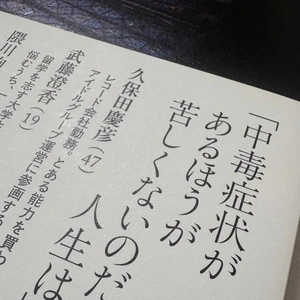 「中毒症状が
あるほうが
苦しくないのだ
人生は
久保田慶彦(47)
レコード会社勤務。
アイドルグループ運営に参画する
武藤澄香(19)
留学を志す とある能力を買わ
悩むうち、大学
隈川